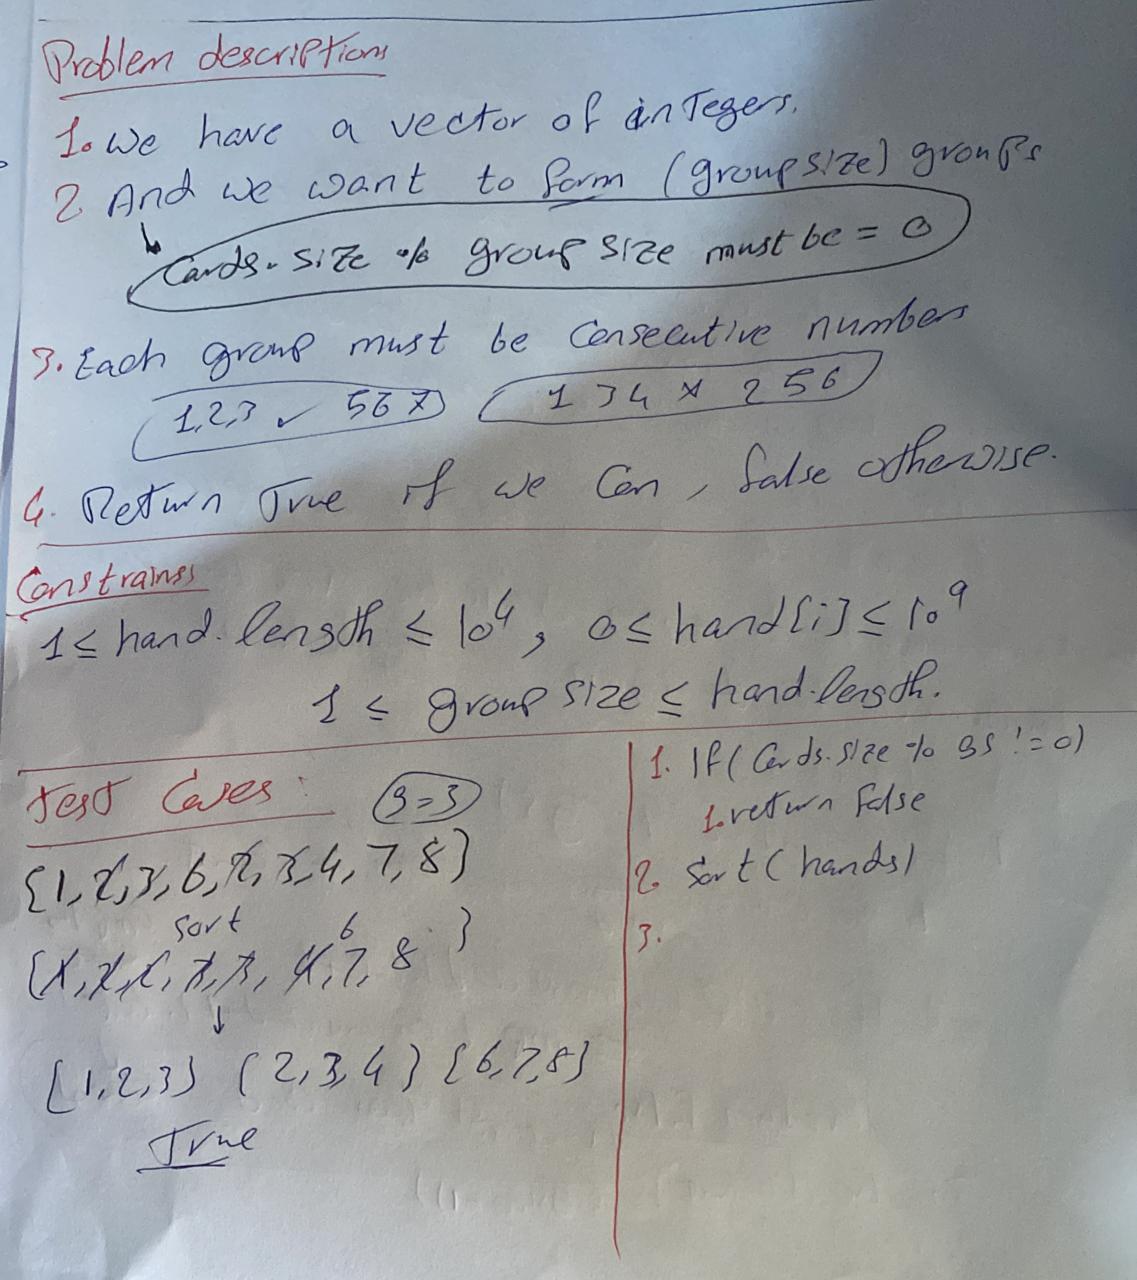 Problem description
1. We have a vector of integers.
2 And we want to form (groupsize) groups
Cards.size % group size must be = 0
3. Each group must be Consecutive numbers
1,2,3 ✓ 567
1 34 x 256
4. Return True if we Can, false otherwise.
Constrains
1 ≤ hand.length ≤ 10⁴, 0 ≤ hand[i] ≤ 10⁹
1 ≤ group size ≤ hand.length.
Test Cases:
g=3
{1,2,3,6,2,3,4,7,8}
sort
6
7, 8 }
↓
{1,2,3} {2,3,4} {6,7,8}
True
1. If (Cards.size % gs != 0)
1. return false
2. Sort (hands)
3.